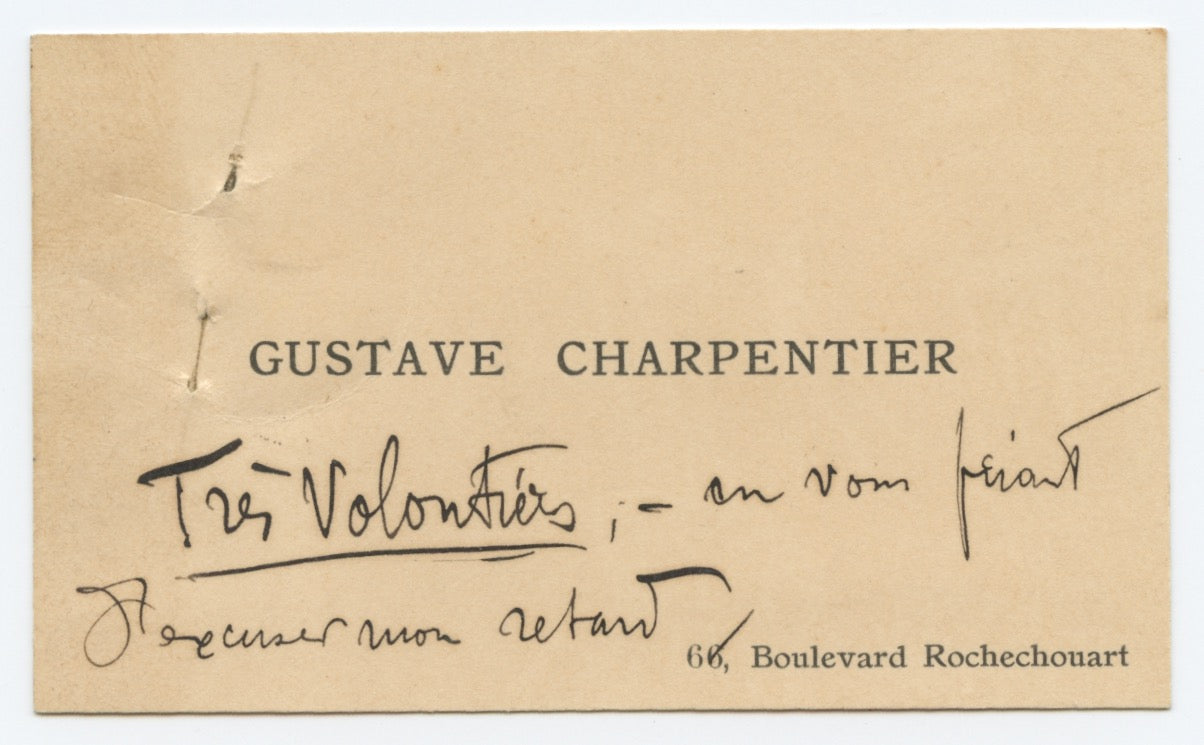 GUSTAVE CHARPENTIER
Très Volontiers, - en vous priant
d'excuser mon retard
66, Boulevard Rochechouart